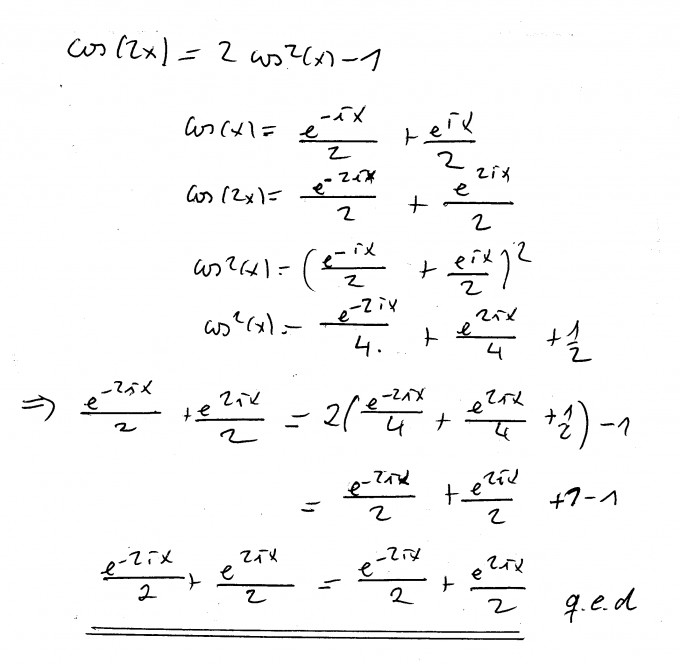 cos(2x) = 2 cos²(x) - 1
cos(x) = e^(-ix)/2 + e^(ix)/2
cos(2x) = e^(-2ix)/2 + e^(2ix)/2
cos²(x) = (e^(-ix)/2 + e^(ix)/2)²
cos²(x) = e^(-2ix)/4. + e^(2ix)/4 + 1/2
⇒ e^(-2ix)/2 + e^(2ix)/2 = 2(e^(-2ix)/4 + e^(2ix)/4 + 1/2) - 1
= e^(-2ix)/2 + e^(2ix)/2 + 1 - 1
e^(-2ix)/2 + e^(2ix)/2 = e^(-2ix)/2 + e^(2ix)/2 q.e.d